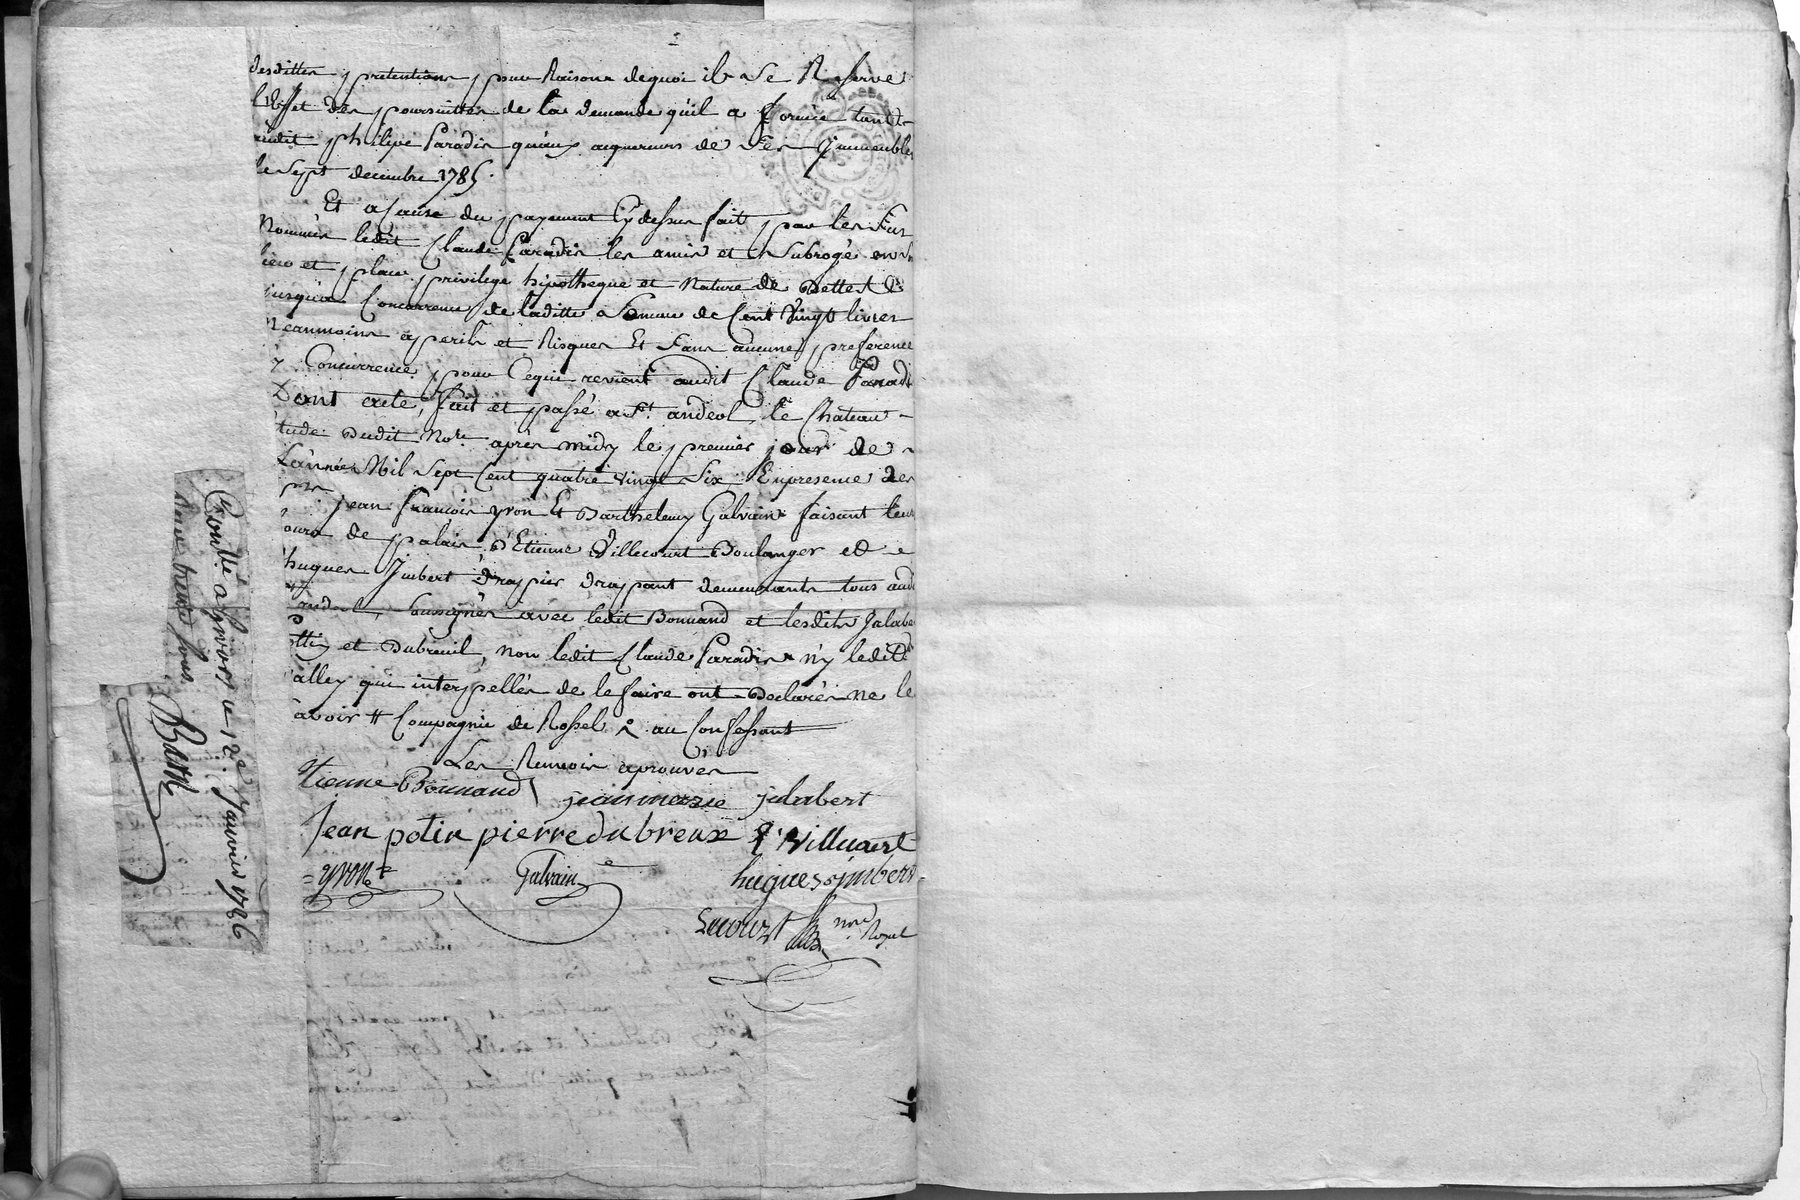 desdittes pretentions pour Raisons dequoi il Se Reserve
l'Effet des poursuittes de la demande qu'il a formée tant
audit philipe Paradis qu'aux acquereurs de Ses Jmmeubles
le Sept decembre 1785.
Et a cause du payement Cy dessus fait par les Sus
Nommés ledit Claude Paradis les amis et Subrogé en
lieu et place privilege hipotheque et Nature de Dettes
jusqu'a Concurrence de laditte Somme de Cent Vingt livres
Neanmoins a perils et Risques Et Sans aucune preference
Concurrence pour Cequi revient audit Claude Paradis
Dont acte, fait et passé a St. andeol le Chateau
etude dudit Nore. après midy le premier jour de
L'année Mil Sept Cent quatre vingt Six, En presence des
Jean francois yvon Et Barthelemy Galvain faisant leur
cours de palais, d'Etienne Villecourt Boulanger et
hugues Jmbert drapier drapant demeurants tous audit
andeol, Soussignés avec ledit Bonnand et lesdits Jalabert
et Dubreuil, non ledit Claude Paradis n'y ledit
qui interpellés de le faire ont Declarés ne le
Scavoir # Compagnie de Rossel au Confessant
Les Renvois aprouvés
Etienne Bonnand jeanmarie jalabert
Jean potin pierre dubreux E. Villecourt
yvon Galvain hugues jmbert
Lecourt nore. Royal
Controllé a Givors le 12e. Janvier 1786
Barth